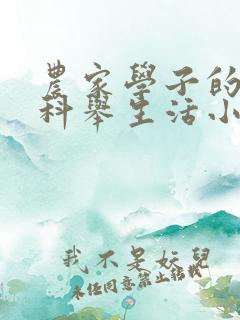 農家學子的
科舉生活小
我不是妖兒
未經同意禁止轉載